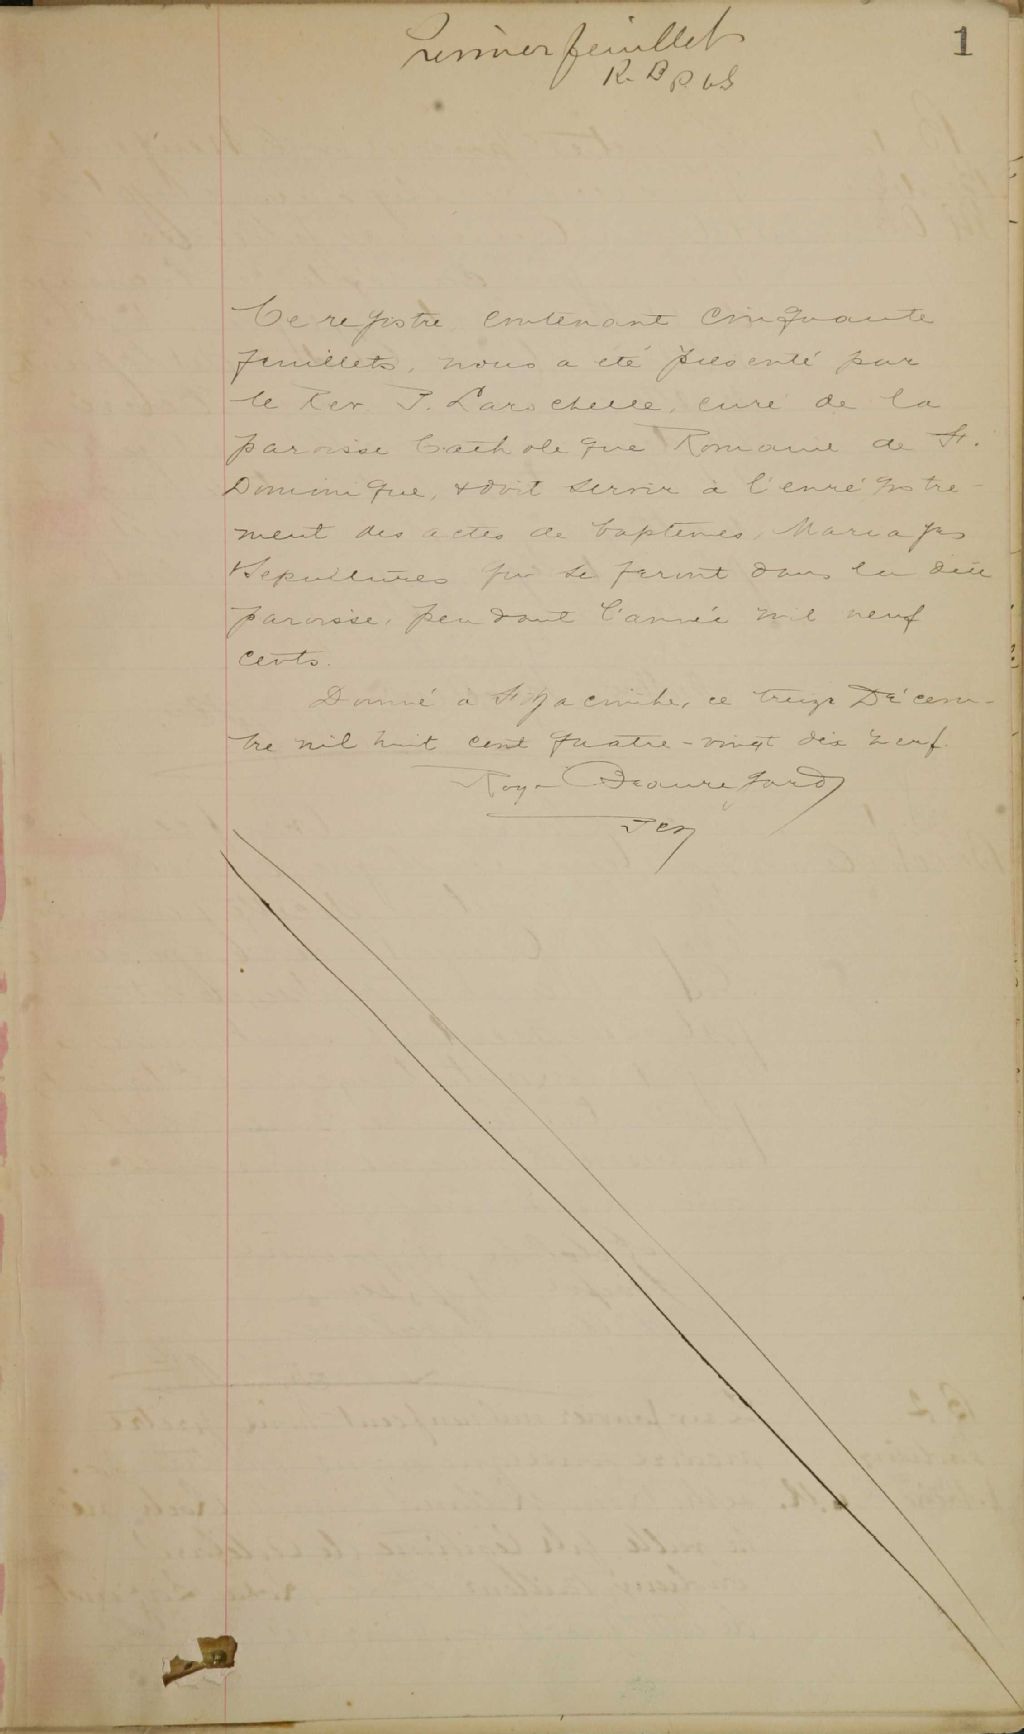 Premier feuillet
1
R. B P C S
Ce registre contenant cinquante
feuillets, nous a été présenté par
le Rev. P. Larochelle, curé de la
paroisse Catholique Romaine de St.
Dominique, & doit servir à l'enrégistre-
ment des actes de baptêmes, Mariages
& Sepultures qui se feront dans la dite
paroisse, pendant l'année mil neuf
cents.
Donné a St Hyacinthe, ce treize Décem-
bre mil huit cent quatre-vingt dix neuf.
Roy & Beauregard